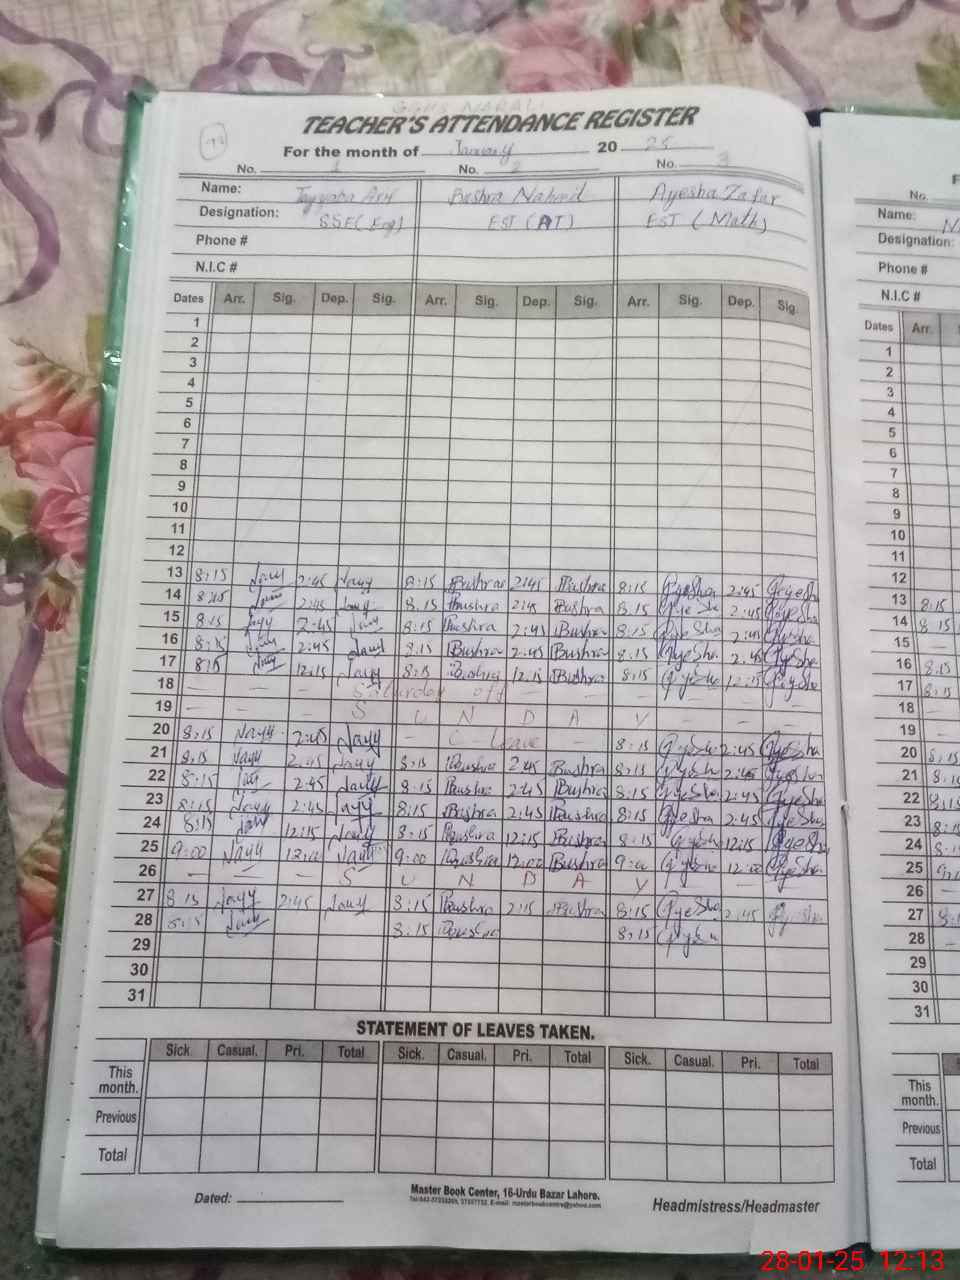 GGHS NARALI
TEACHER'S ATTENDANCE REGISTER
For the month of January 20 25
No. 1 No. 2 No. 3
Name: Tayyaba Arif Bushra Naheed Ayesha Zafar
Designation: SSE(Eng) EST (AT) EST (Math)
Phone #
N.I.C #
Dates Arr. Sig. Dep. Sig. Arr. Sig. Dep. Sig. Arr. Sig. Dep. Sig.
1
2
3
4
5
6
7
8
9
10
11
12
13 8:15 2:45 8:15 Bushra 2:45 Bushra 8:15 Ayesha 2:45 Ayesha
14 8:15 2:45 8:15 Bushra 2:45 Bushra 8:15 Ayesha 2:45 Ayesha
15 8:15 2:45 8:15 Bushra 2:45 Bushra 8:15 Ayesha 2:45 Ayesha
16 8:15 2:45 8:15 Bushra 2:45 Bushra 8:15 Ayesha 2:45 Ayesha
17 8:15 12:15 8:15 Bushra 12:15 Bushra 8:15 Ayesha 12:15 Ayesha
18 — — — Saturday off — — — — — —
19 — — — S U N D A Y — — —
20 8:15 2:45 — C- Leave — 8:15 Ayesha 2:45 Ayesha
21 8:15 2:45 8:15 Bushra 2:45 Bushra 8:15 Ayesha 2:45 Ayesha
22 8:15 2:45 8:15 Bushra 2:45 Bushra 8:15 Ayesha 2:45 Ayesha
23 8:15 2:45 8:15 Bushra 2:45 Bushra 8:15 Ayesha 2:45 Ayesha
24 8:15 12:15 8:15 Bushra 12:15 Bushra 8:15 Ayesha 12:15 Ayesha
25 9:00 12:00 9:00 Bushra 12:00 Bushra 9:00 Ayesha 12:00 Ayesha
26 — — — S U N D A Y — — —
27 8:15 2:45 8:15 Bushra 2:15 Bushra 8:15 Ayesha 2:45 Ayesha
28 8:15 8:15 Bushra 8:15 Ayesha
29
30
31
STATEMENT OF LEAVES TAKEN.
Sick. Casual. Pri. Total Sick. Casual. Pri. Total Sick. Casual. Pri. Total
This month.
Previous
Total
Dated:
Master Book Center, 16-Urdu Bazar Lahore.
Headmistress/Headmaster
No.
Name:
Designation:
Phone #
N.I.C #
Dates Arr.
1
2
3
4
5
6
7
8
9
10
11
12
13 8:15
14 8:15
15 —
16 8:15
17 8:15
18 —
19 —
20 8:15
21
22 8:15
23
24
25
26 —
27
28 —
29
30
31
This month.
Previous
Total
28-01-25 12:13